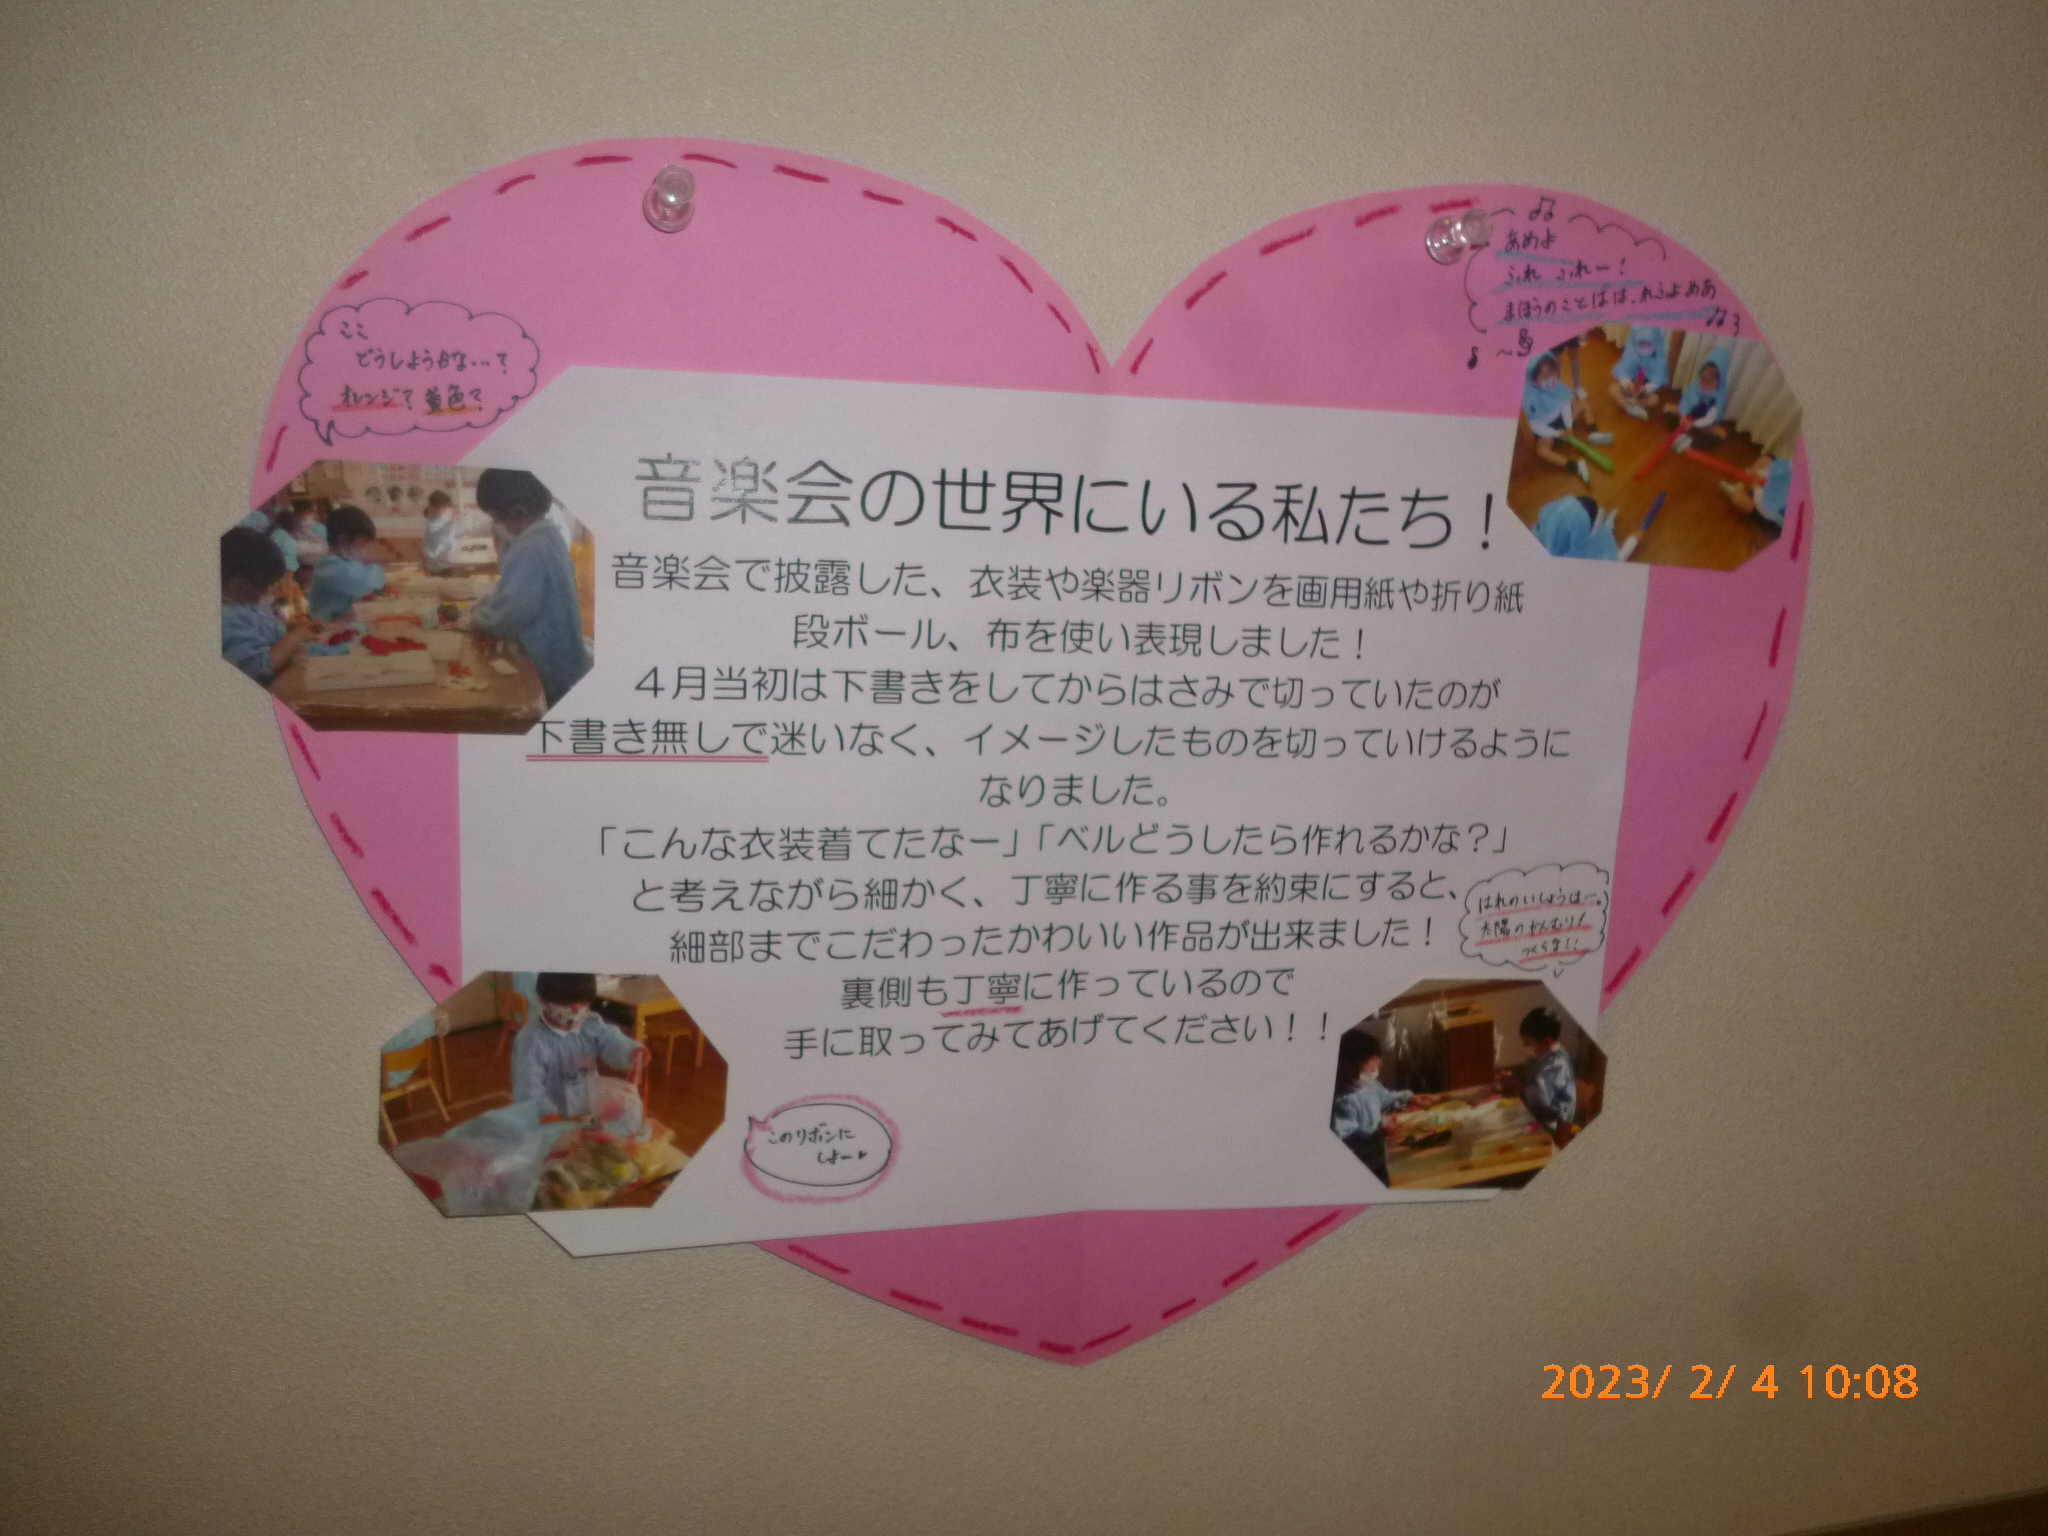 ここ
どうしようかな…?
オレンジ?黄色?
あめよ
ふれ ふれー!
まほうのことばは、れふよめあ
音楽会の世界にいる私たち!
音楽会で披露した、衣装や楽器リボンを画用紙や折り紙
段ボール、布を使い表現しました!
4月当初は下書きをしてからはさみで切っていたのが
下書き無しで迷いなく、イメージしたものを切っていけるように
なりました。
「こんな衣装着てたなー」「ベルどうしたら作れるかな?」
と考えながら細かく、丁寧に作る事を約束にすると、
細部までこだわったかわいい作品が出来ました!
裏側も丁寧に作っているので
手に取ってみてあげてください!!
はれのいしょうは…。
太陽のかんむり!
つくらな!!
このリボンに
しよー♥
2023/ 2/ 4 10:08